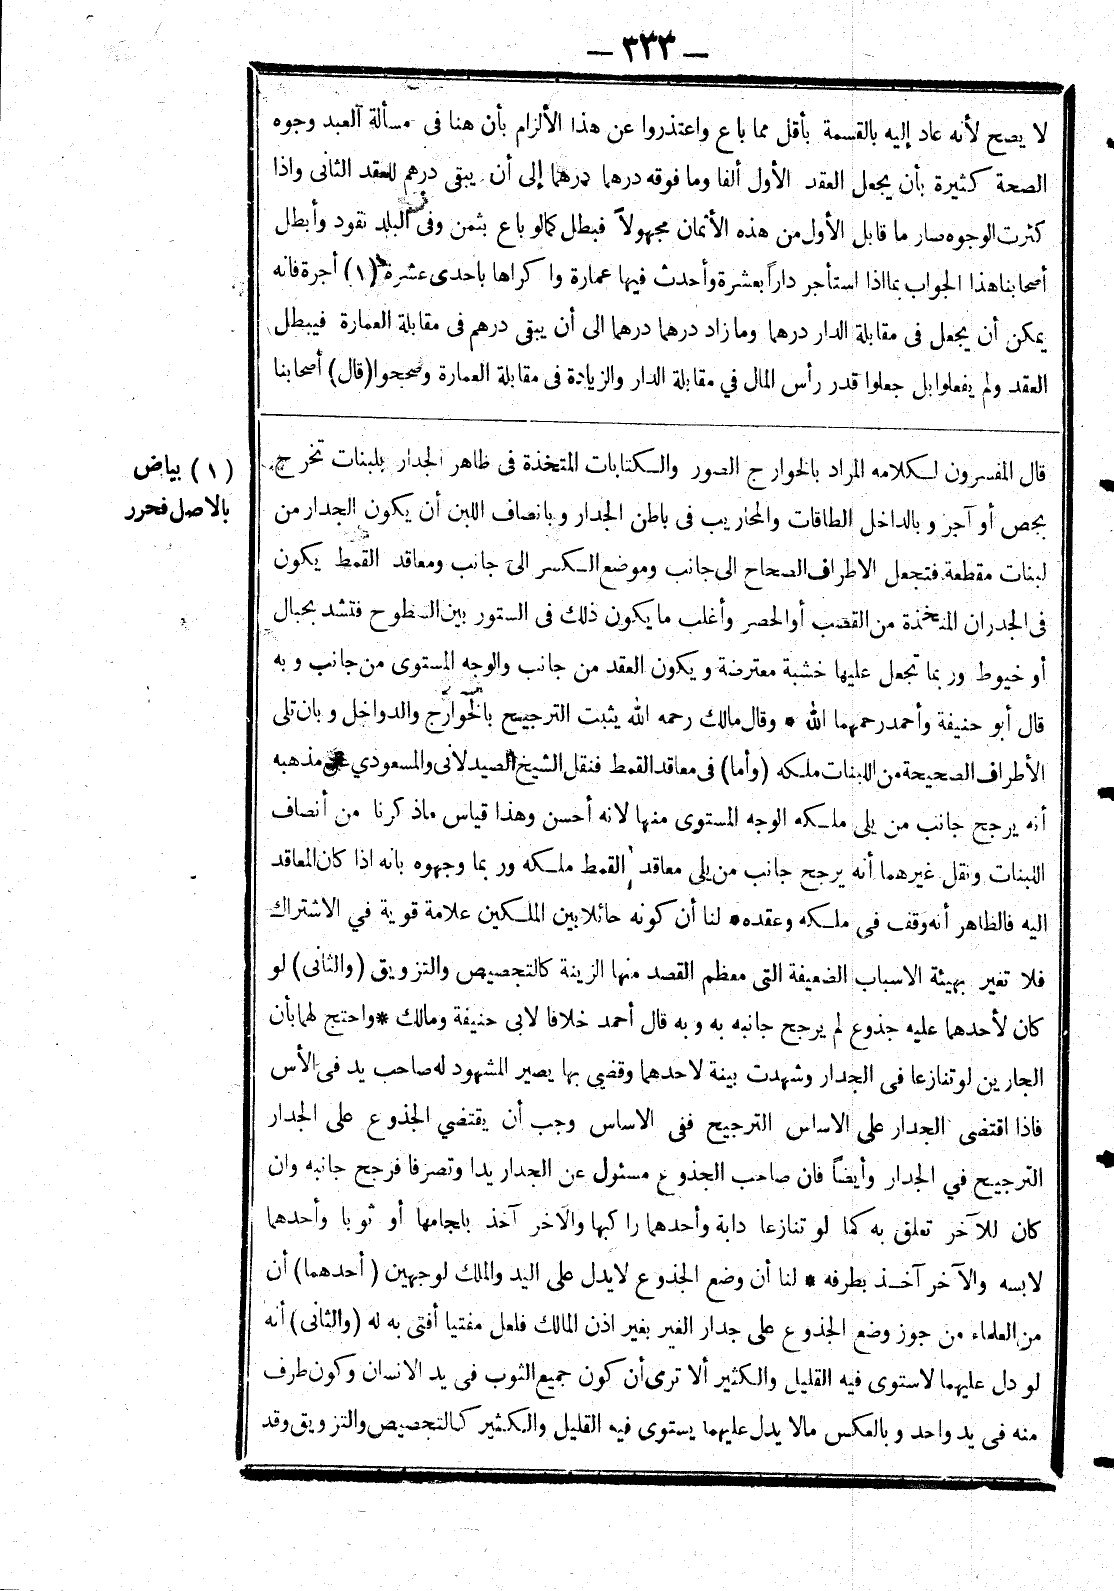 — ٣٣٣ —
لا يصح لأنه عاد إليه بالقسمة بأقل مما باع واعتذروا عن هذا الألزام بأن هنا فى مسألة العبد وجوه
الصحة كثيرة بأن يجعل العقد الأول ألفا وما فوقه درهما درهما إلى أن يبقى درهم للعقد الثانى واذا
كثرت الوجوه صار ما قابل الأول من هذه الأثمان مجهولاً فبطل كما لو باع بثمن وفى البلد نقود وأبطل
أصحابنا هذا الجواب بما اذا استأجر داراً بعشرة وأحدث فيها عمارة واكراها باحدى عشرة (١) أجرة فانه
يمكن أن يجعل فى مقابلة الدار درهما وما زاد درهما درهما الى أن يبقى درهم فى مقابلة العمارة فيبطل
العقد ولم يفعلوا بل جعلوا قدر رأس المال في مقابلة الدار والزيادة فى مقابلة العمارة وصححوا (قال) أصحابنا
قال المفسرون لكلامه المراد بالخوارج الصور والكتابات المتخذة فى ظاهر الجدار بلبنات تخرج
بجص أو آجر وبالداخل الطاقات والمحاريب فى باطن الجدار وبانصاف اللبن أن يكون الجدار من
لبنات مقطعة فتجعل الاطراف الصحاح الى جانب وموضع الكسر الى جانب ومعاقد القمط يكون
فى الجدران المتخذة من القصب أو الحصر وأغلب ما يكون ذلك فى الستور بين السطوح فتشد بحبال
أو خيوط وربما تجعل عليها خشبة معترضة ويكون العقد من جانب والوجه المستوى من جانب وبه
قال أبو حنيفة وأحمد رحمهما الله * وقال مالك رحمه الله يثبت الترجيح بالخوارج والدواخل وبان تلى
الأطراف الصحيحة من اللبنات ملكه (وأما) فى معاقد القمط فنقل الشيخ الصيدلانى والمسعودي عن مذهبه
أنه يرجح جانب من يلى ملكه الوجه المستوى منها لانه أحسن وهذا قياس ماذكرنا من أنصاف
اللبنات ونقل غيرهما أنه يرجح جانب من يلى معاقد القمط ملكه وربما وجهوه بانه اذا كان المعاقد
اليه فالظاهر أنه وقف فى ملكه وعقده * لنا أن كونه حائلا بين الملكين علامة قوية في الاشتراك
فلا تغير بهيئة الاسباب الضعيفة التى معظم القصد منها الزينة كالتجصيص والتزويق (والثانى) لو
كان لأحدهما عليه جذوع لم يرجح جانبه به وبه قال أحمد خلافا لابى حنيفة ومالك * واحتج لهما بأن
الجارين لو تنازعا فى الجدار وشهدت بينة لاحدهما وقضي بها يصير المشهود له صاحب يد فى الأس
فاذا اقتضى الجدار على الاساس الترجيح ففى الاساس وجب أن يقتضي الجذوع على الجدار
الترجيح في الجدار وأيضاً فان صاحب الجذوع مسئول عن الجدار يدا وتصرفا فرجح جانبه وان
كان للآخر تعلق به كما لو تنازعا دابة وأحدهما راكبها والآخر آخذ بلجامها أو ثوبا وأحدهما
لابسه والآخر آخذ بطرفه * لنا أن وضع الجذوع لايدل على اليد والملك لوجهين (أحدهما) أن
من العلماء من جوز وضع الجذوع على جدار الغير بغير اذن المالك فلعل مفتيا أفتى به له (والثانى) أنه
لو دل عليهما لاستوى فيه القليل والكثير ألا ترى أن كون جميع الثوب فى يد الانسان وكون طرف
منه فى يد واحد وبالعكس مالا يدل عليهما يستوى فيه القليل والكثير كالتجصيص والتزويق وقد
(١) بياض
بالاصل فحرر